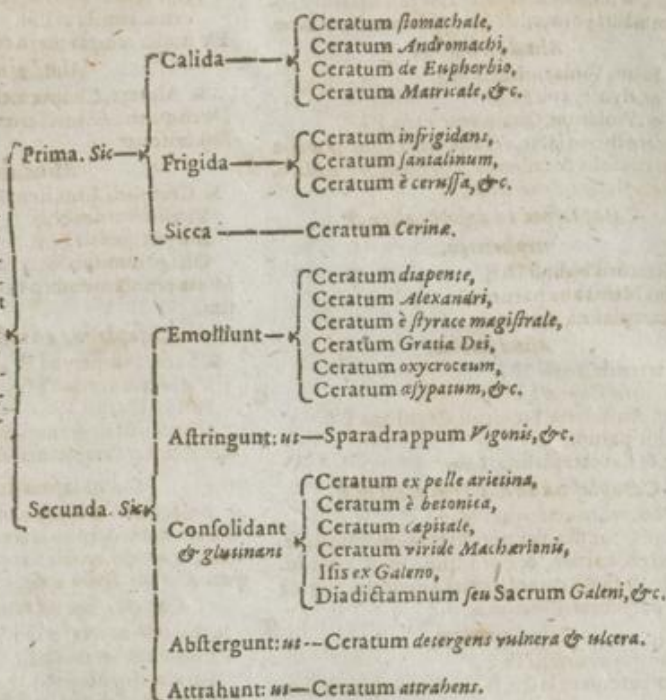 Ceratum ſtomachale,
Ceratum Andromachi,
Calida
Ceratum de Euphorbio,
Ceratum Matricale, &c.
Prima. Sic
Ceratum infrigidans,
Frigida
Ceratum ſantalinum,
Ceratum è ceruſſa, &c.
Sicca Ceratum Cerinæ.
Ceratum diapente,
Ceratum Alexandri,
Emolliunt
Ceratum è ſtyrace magiſtrale,
Ceratum Gratia Dei,
Ceratum oxycroceum,
Ceratum æſypatum, &c.
Aſtringunt: ut Sparadrappum Vigonis, &c.
Secunda. Sic
Ceratum ex pelle arietina,
Ceratum è betonica,
Conſolidant
Ceratum capitale,
& glutinant
Ceratum viride Machærionis,
Iſis ex Galeno,
Diadictamnum ſeu Sacrum Galeni, &c.
Abſtergunt: ut Ceratum detergens vulnera & ulcera.
Attrahunt: ut Ceratum attrahens.